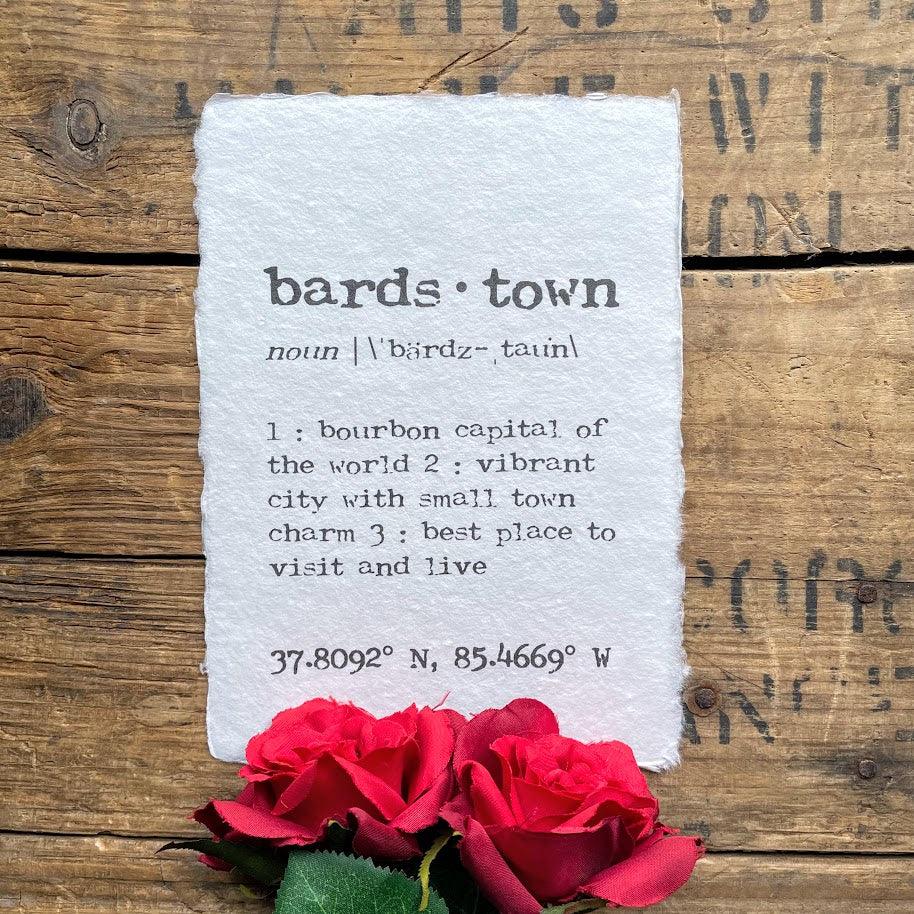 WIT
bards•town
noun | \ˈbärdz-ˌtau̇n\
1 : bourbon capital of
the world 2 : vibrant
city with small town
charm 3 : best place to
visit and live
37.8092° N, 85.4669° W